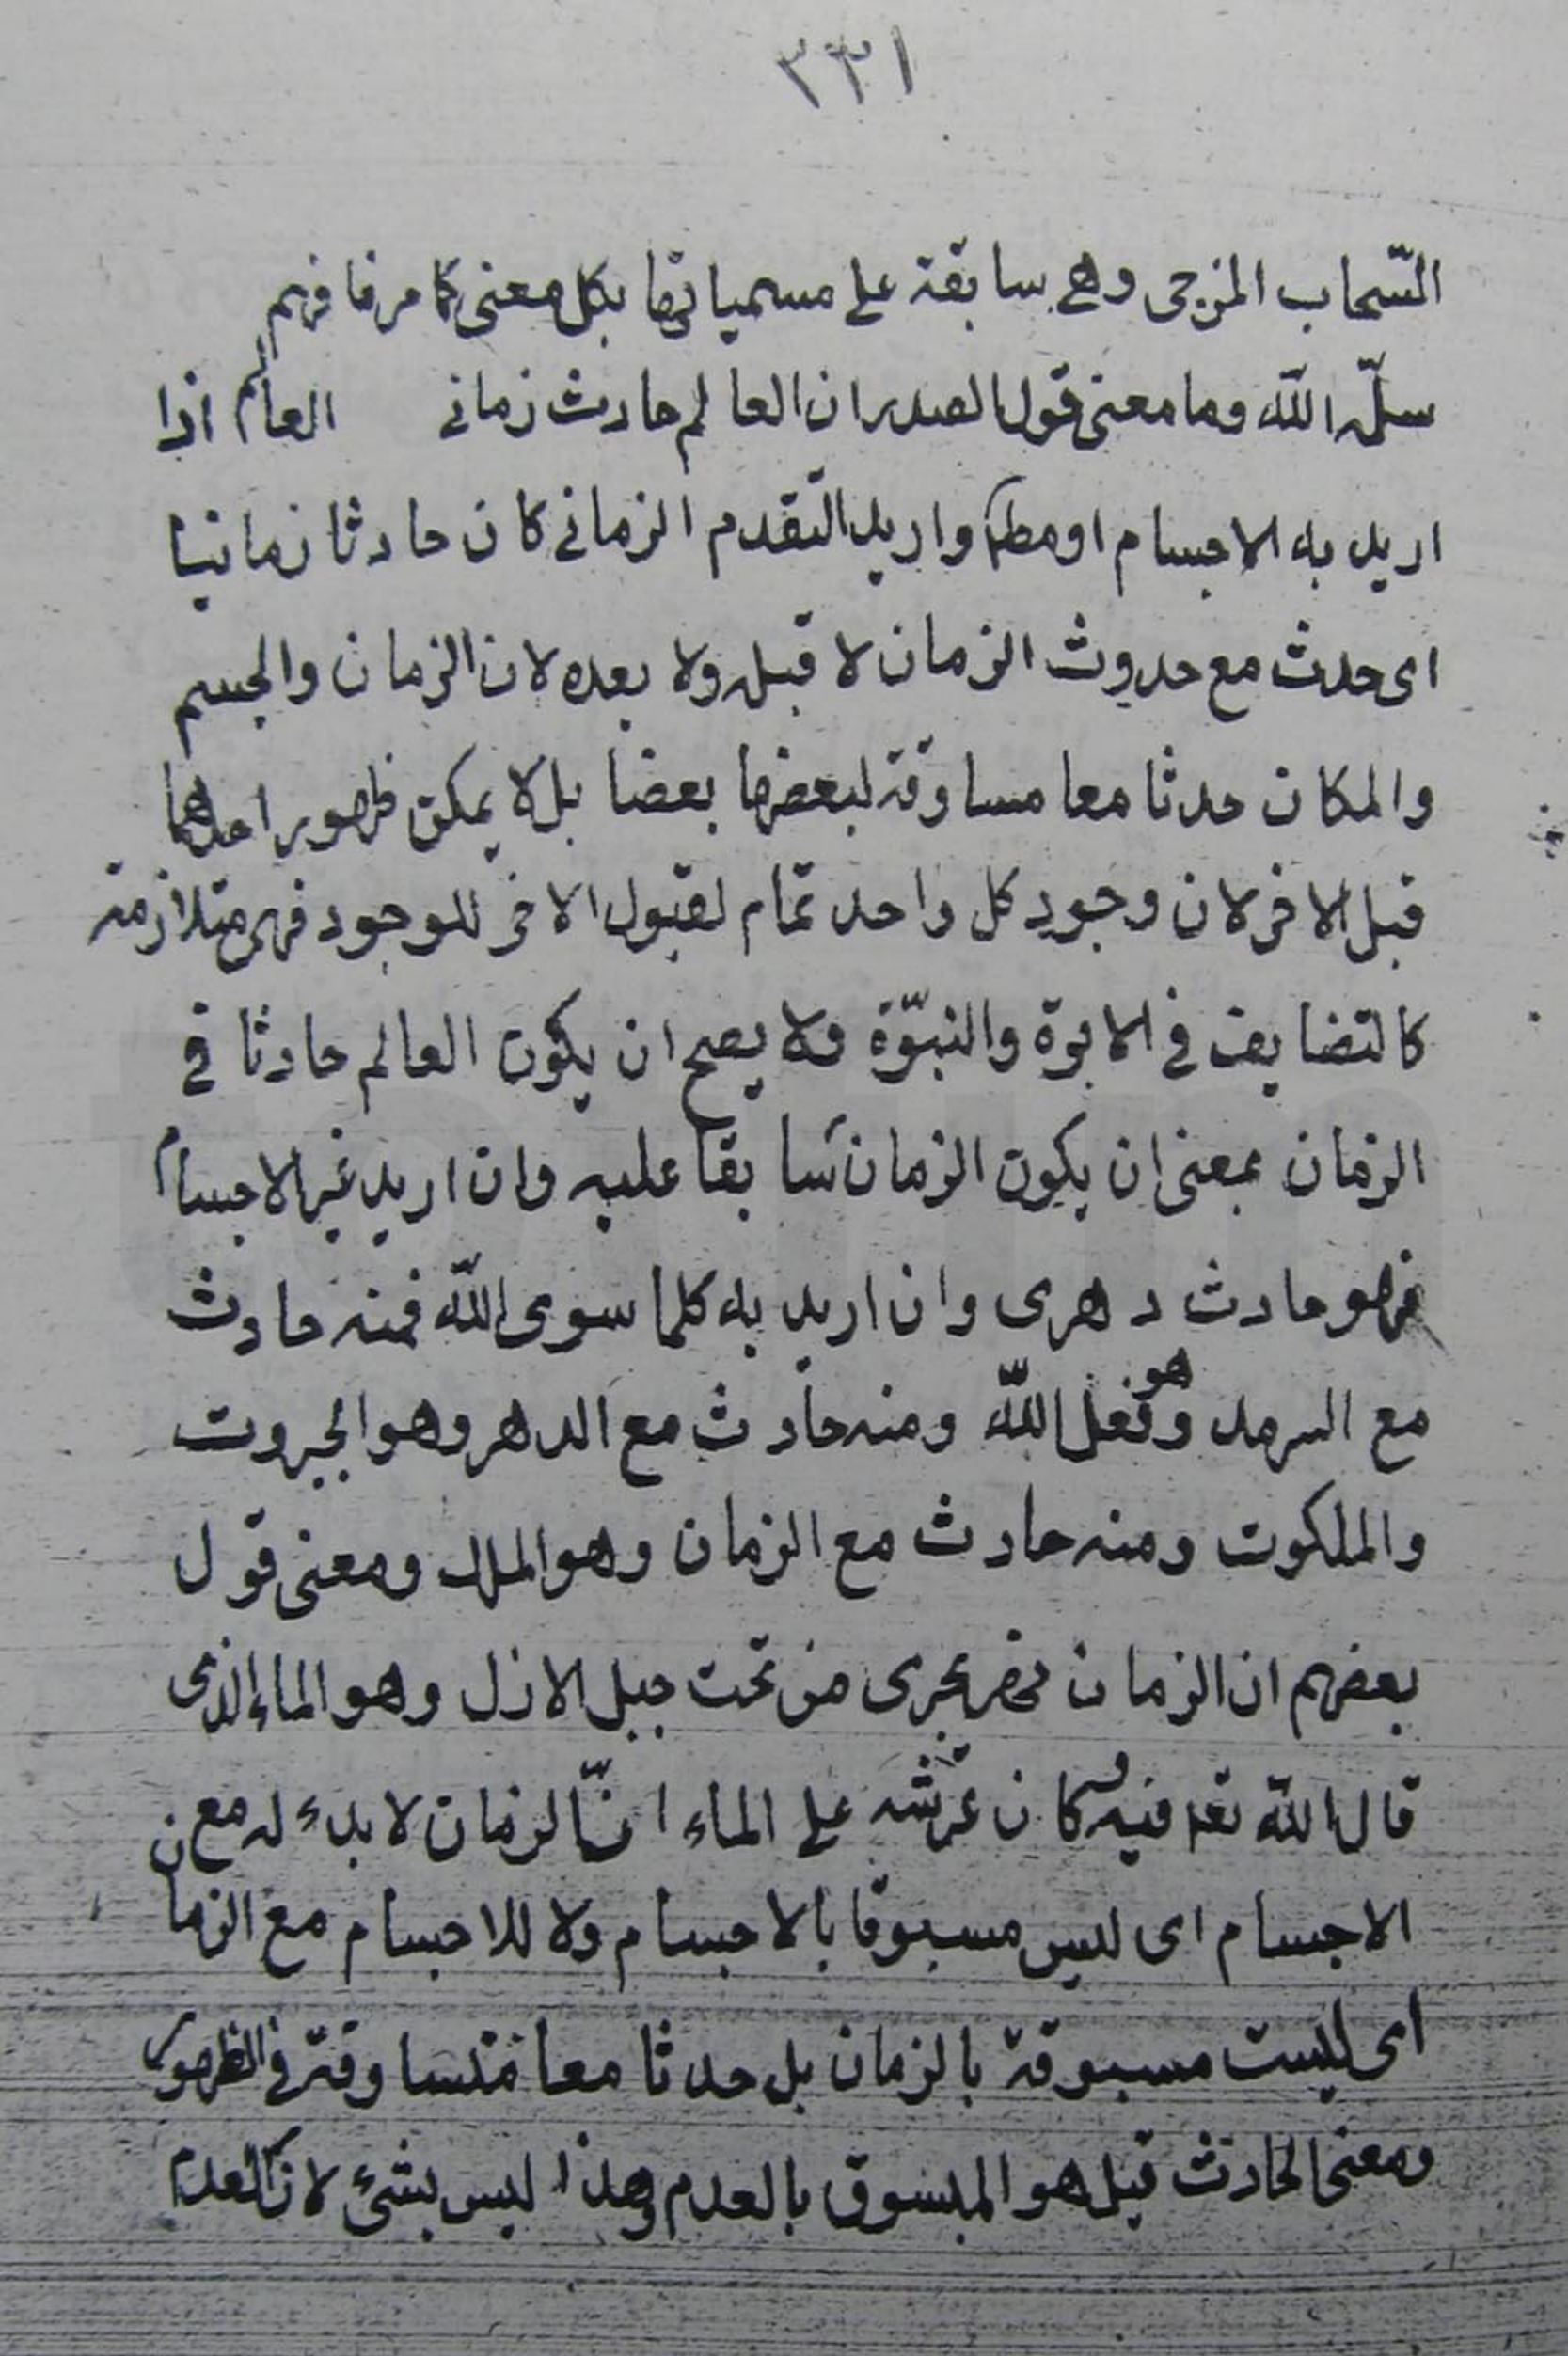 ٣٣١
السّحاب المزجى وهى سابقة على مسمياتها بكل معنى كما مر فافهم
سلّمه اللّه وما معنى قول الصدر ان العالم حادث زمانى العالم اذا
اريد به الاجسام او مطلقا واريد التّقدم الزمانى كان حادثا زمانيا
اى حدث مع حدوث الزمان لا قبله ولا بعده لان الزمان والجسم
والمكان حدثا معا مساوقة لبعضها بعضا بل لا يمكن ظهور احدهما
قبل الاخر لان وجود كل واحد تمام لقبول الاخر للوجود فهى متلازمة
كالتضايف فى الابوة والنبوّة ولا يصح ان يكون العالم حادثا فى
الزمان بمعنى ان يكون الزمان سابقا عليه وان اريد غير الاجسام
فهو حادث دهرى وان اريد به كلما سوى اللّه فمنه حادث
مع السرمد وهو فعل اللّه ومنه حادث مع الدهر وهو الجبروت
والملكوت ومنه حادث مع الزمان وهو الملك ومعنى قول
بعضهم ان الزمان نهر يجرى من تحت جبل الازل وهو الماء الذى
قال اللّه تعا فيه وكان عرشه على الماء انّ الزمان لا بدء له مع
الاجسام اى ليس مسبوقا بالاجسام ولا للاجسام مع الزمان
اى ليست مسبوقة بالزمان بل حدثا معا متساوقة فى الظهور
ومعنى الحادث قيل هو المبسوق بالعدم وهذا ليس بشئ لان العدم